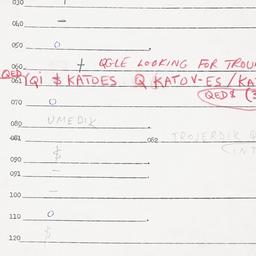 030
040 -
050 O
060 † QGLE LOOKING FOR TROU
QED 061 (QI $ KATDES Q KATOV-ES/KA
QED$ (3
070 O
080 UMEDIK
081 062 TROJERDIK Q
090 $ (INT
091 -
100 -
110 O
120 $